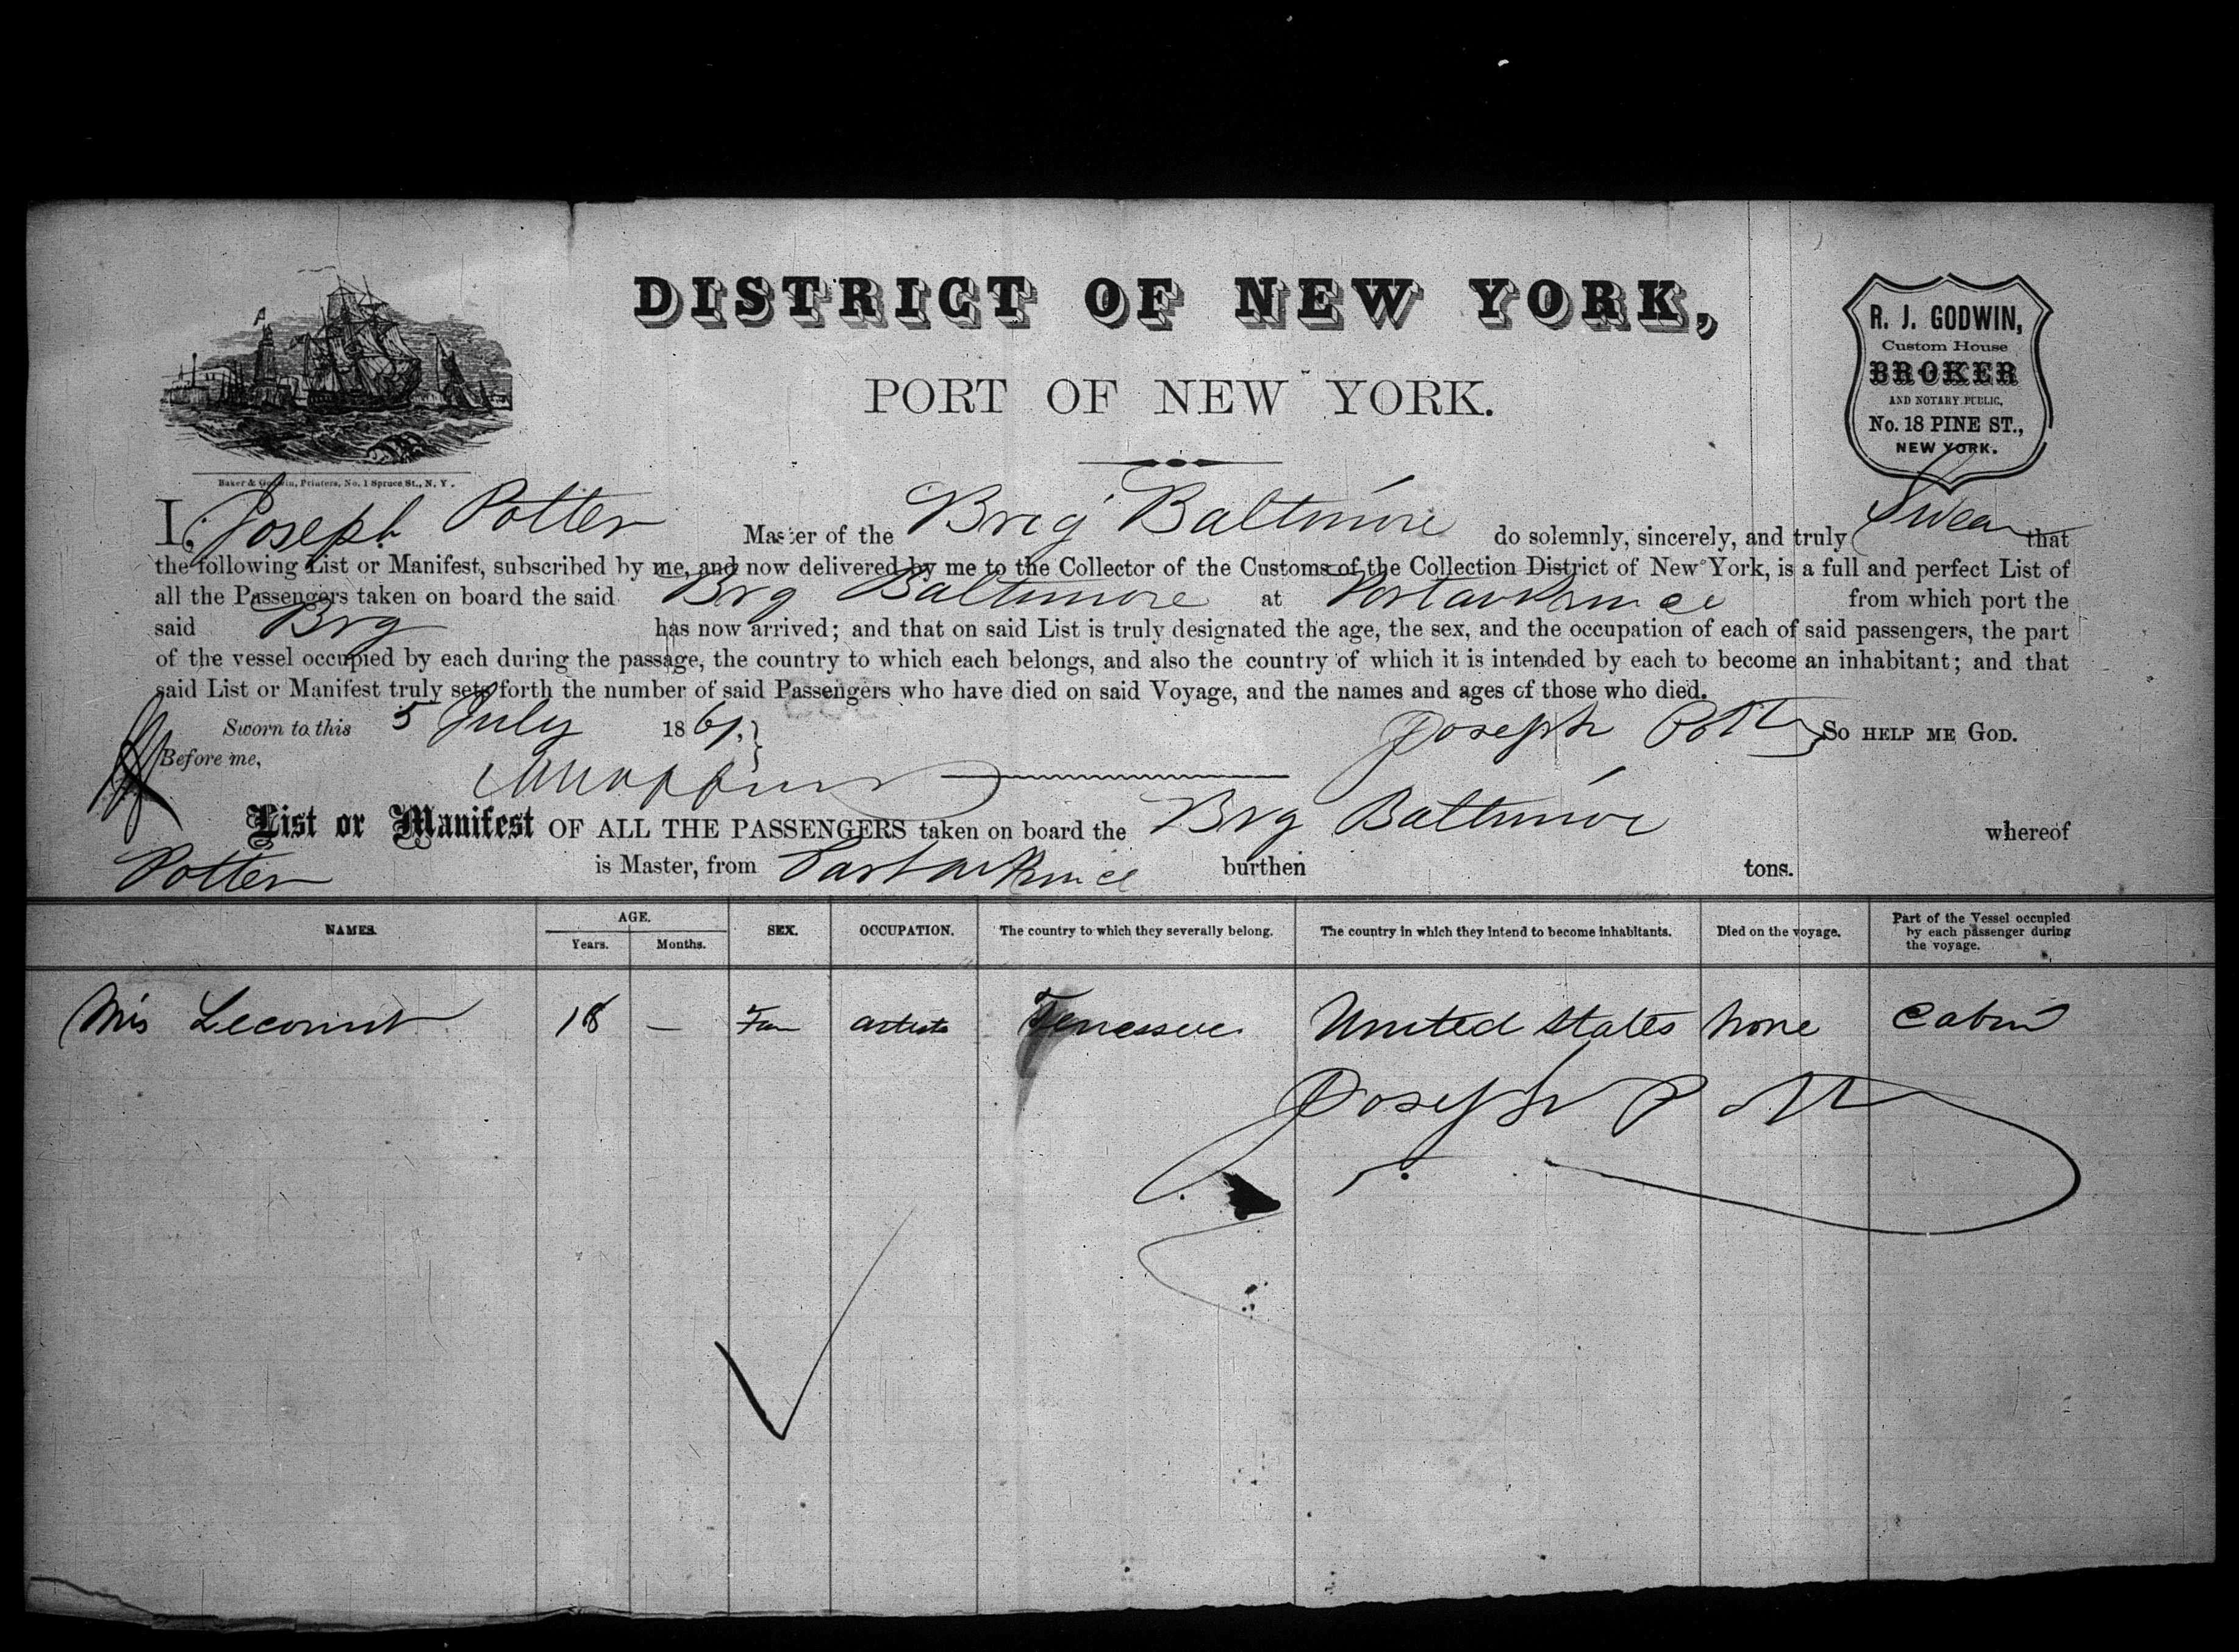 DISTRICT OF NEW YORK,
PORT OF NEW YORK.
R. J. GODWIN,
Custom House
BROKER
AND NOTARY PUBLIC,
No. 18 PINE ST.,
NEW YORK.
Baker & Godwin, Printers, No. 1 Spruce St., N. Y.
I, Joseph Potter Master of the Brig Baltimore do solemnly, sincerely, and truly Swear that
the following List or Manifest, subscribed by me, and now delivered by me to the Collector of the Customs of the Collection District of New York, is a full and perfect List of
all the Passengers taken on board the said Brg Baltimore at Portauprince from which port the
said Brg has now arrived; and that on said List is truly designated the age, the sex, and the occupation of each of said passengers, the part
of the vessel occupied by each during the passage, the country to which each belongs, and also the country of which it is intended by each to become an inhabitant; and that
said List or Manifest truly sets forth the number of said Passengers who have died on said Voyage, and the names and ages of those who died.
Sworn to this 5 July 1861. Joseph Potter So HELP ME GOD.
Before me,
List or Manifest OF ALL THE PASSENGERS taken on board the Brg Baltimore whereof
Potter is Master, from Portauprince burthen tons.
NAMES. AGE. Years. Months. SEX. OCCUPATION. The country to which they severally belong. The country in which they intend to become inhabitants. Died on the voyage. Part of the Vessel occupied by each passenger during the voyage.
18 — Fem artiste Tenessee United States None Cabin
Joseph Potter